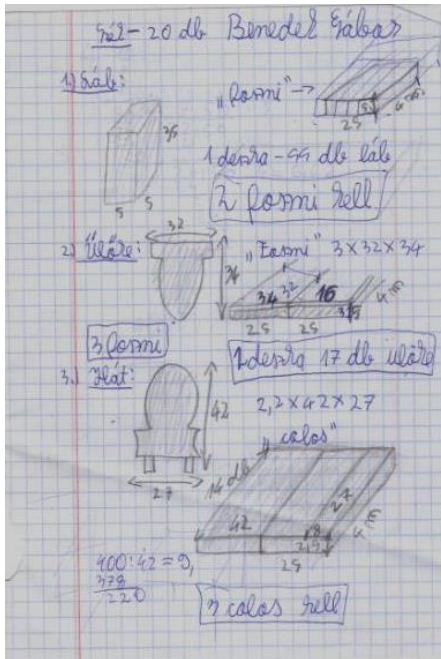 Szék - 20 db Benedek Gábor
1) Láb:
„fosmi” →
35
5 5
5
25
4 m
1 deszka - 44 db láb
2 fosmi kell
2) Ülőke:
32
34
„Fosmi” 3×32×34
34 32 16
25 25
4 m
3 fosmi
1 deszka 17 db ülőke
3.) Hát:
42
27
2,2×42×27
„colos”
14 db
42
27
8
2,5
25
4 m
400:42=9,
378
220
2 colos kell